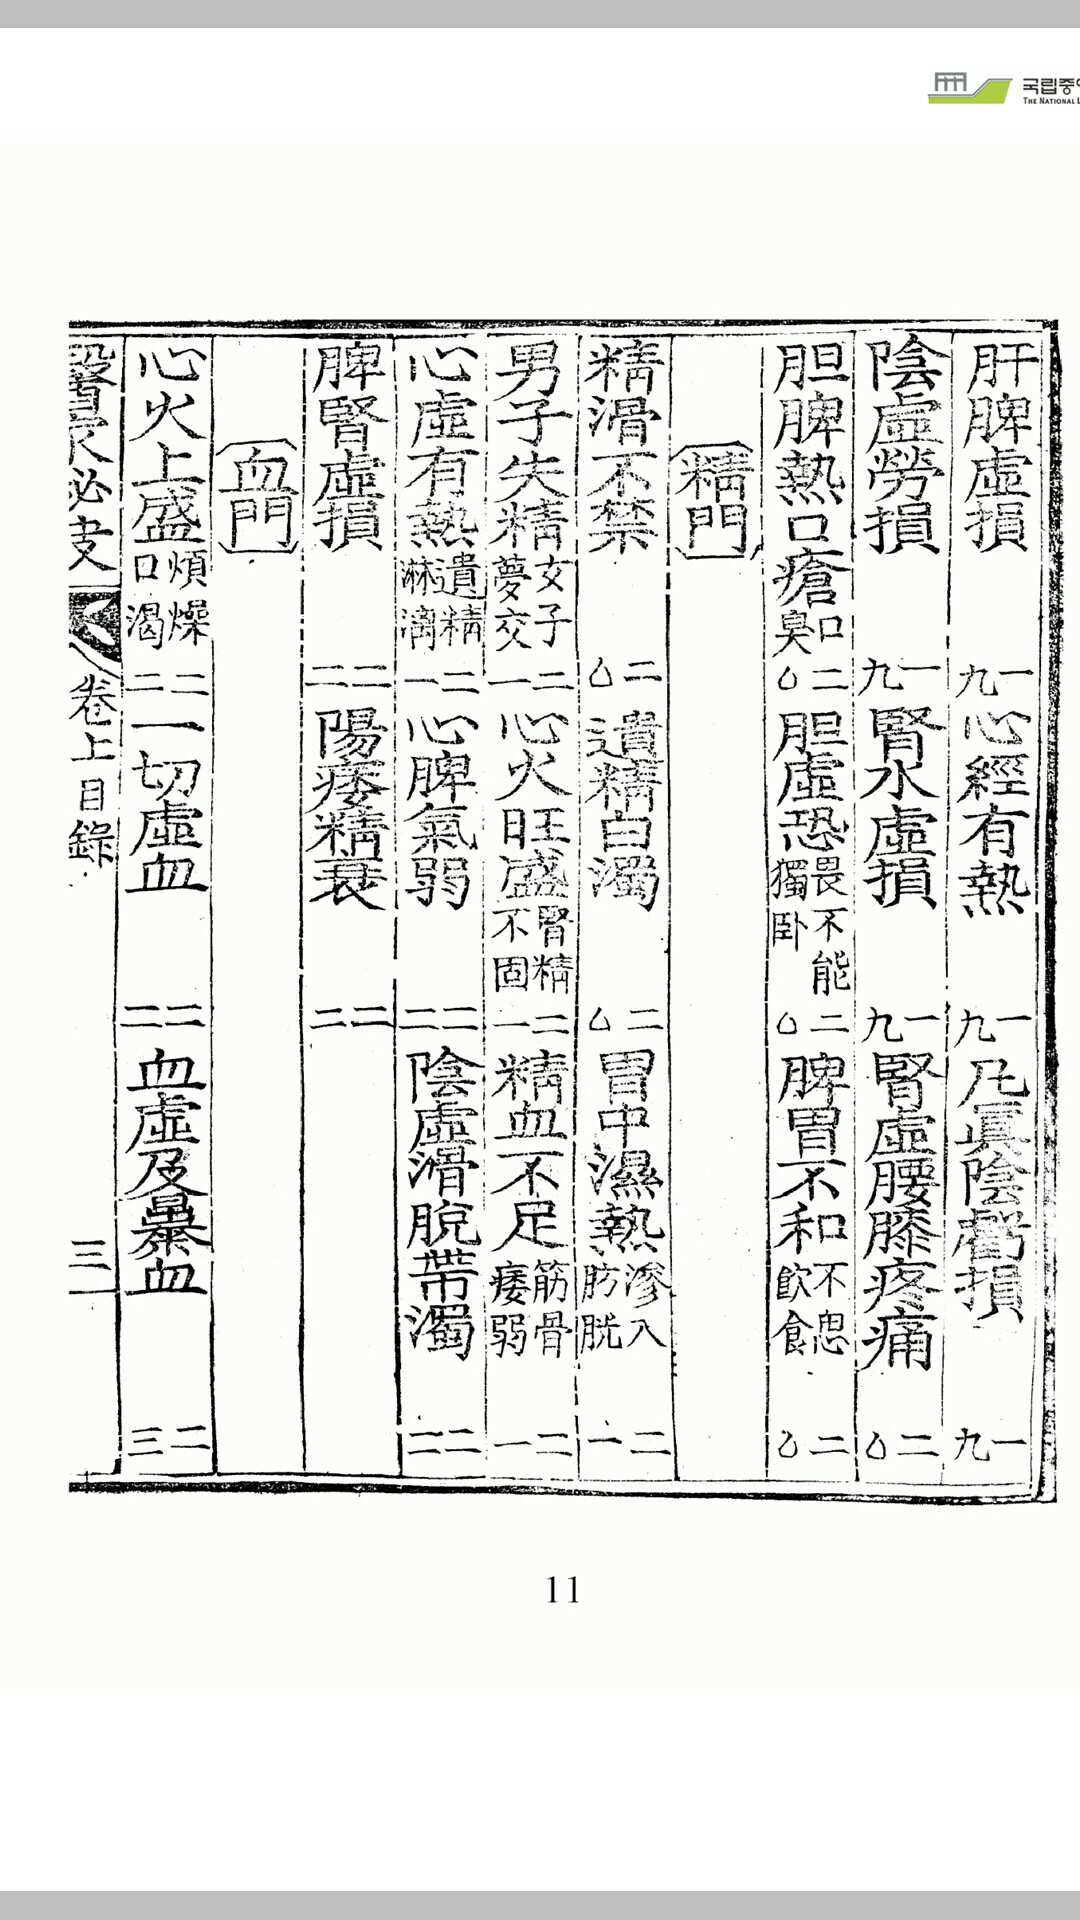 국립중
THE NATIONAL L
肝脾虛損 一九 心經有熱 一九 凡眞陰虧損 一九
陰虛勞損 一九 腎水虛損 一九 腎虛腰膝疼痛 二〇
胆脾熱口瘡口臭 二〇 胆虛恐畏不能獨卧 二〇 脾胃不和不思飮食 二〇
精門
精滑不禁 二〇 遺精白濁 二〇 胃中濕熱滲入肪胱 二一
男子失精女子夢交 二一 心火旺盛腎精不固 二一 精血不足筋骨痿弱 二一
心虛有熱遺精淋漓 二一 心脾氣弱 二二 陰虛滑脫帶濁 二二
脾腎虛損 二二 陽痿精衰 二二
血門
心火上盛煩燥口渴 二二 一切虛血 二二 血虛及暴血 二三
醫家必携 卷上目錄 三
11